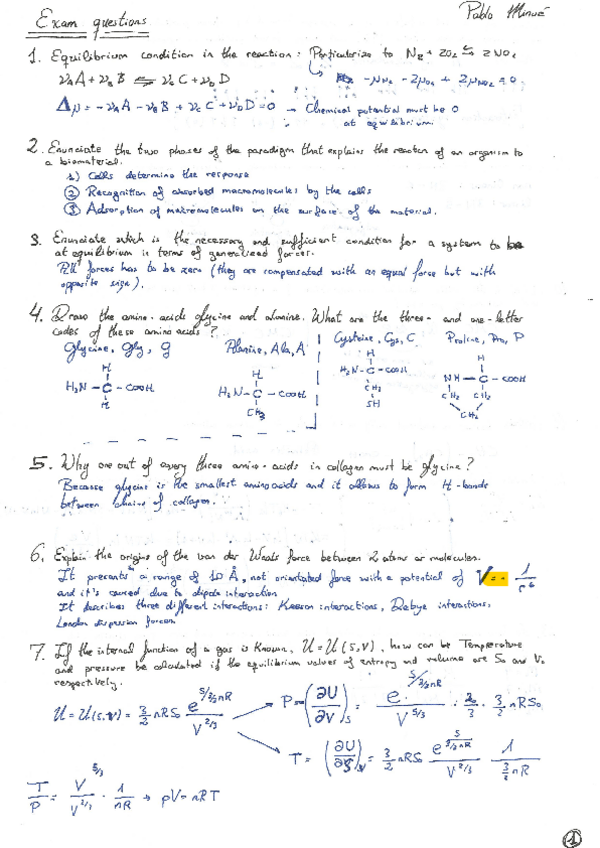 Exam questions
Pablo Minué
1. Equilibrium condition in the reaction: Particularize to N2 + 2O2 ⇆ 2NO2
νA A + νB B ⇌ νC C + νD D
-μN2 - 2μO2 + 2μNO2 = 0
Δμ = -νA A - νB B + νC C + νD D = 0 → Chemical potential must be 0
at equilibrium
2. Enunciate the two phases of the paradigm that explains the reaction of an organism to
a biomaterial.
1) Cells determine the response
② Recognition of absorbed macromolecules by the cells
③ Adsorption of macromolecules on the surface of the material.
3. Enunciate which is the necessary and sufficient condition for a system to be
at equilibrium in terms of generalized forces.
All forces has to be zero (they are compensated with an equal force but with
opposite sign).
4. Draw the amino-acids glycine and alanine. What are the three- and one-letter
codes of these amino acids?
Glycine, Gly, G
Alanine, Ala, A
Cysteine, Cys, C
Proline, Pro, P
H
H2N - C - COOH
H
H
H2N - C - COOH
CH3
H
H2N - C - COOH
CH2
SH
H
NH - C - COOH
CH2 CH2
CH2
5. Why one out of every three amino-acids in collagen must be glycine?
Because glycine is the smallest aminoacids and it allows to form H-bonds
between chains of collagen.
6. Explain the origins of the van der Waals force between 2 atoms or molecules.
It presents a range of 10 Å, not orientated force with a potential of V = - 1/r^6
and it's caused due to dipole interaction
It describes three different interactions: Keesom interactions, Debye interactions,
London dispersion forces
7. If the internal function of a gas is known, U = U(S,V), how can be Temperature
and pressure be calculated if the equilibrium values of entropy and volume are S0 and V0
respectively.
U = U(S,V) = 3/2 nRS0 e^(S/3/2nR) / V^(2/3)
P = -(∂U/∂V)S = e^(S/3/2nR) / V^(5/3) · 2/3 · 3/2 nRS0
T = (∂U/∂S)V = 3/2 nRS0 e^(S/3/2nR) / V^(2/3) · 1 / 3/2 nR
T/P = V^(5/3) / V^(2/3) · 1/nR → pV = nRT
1